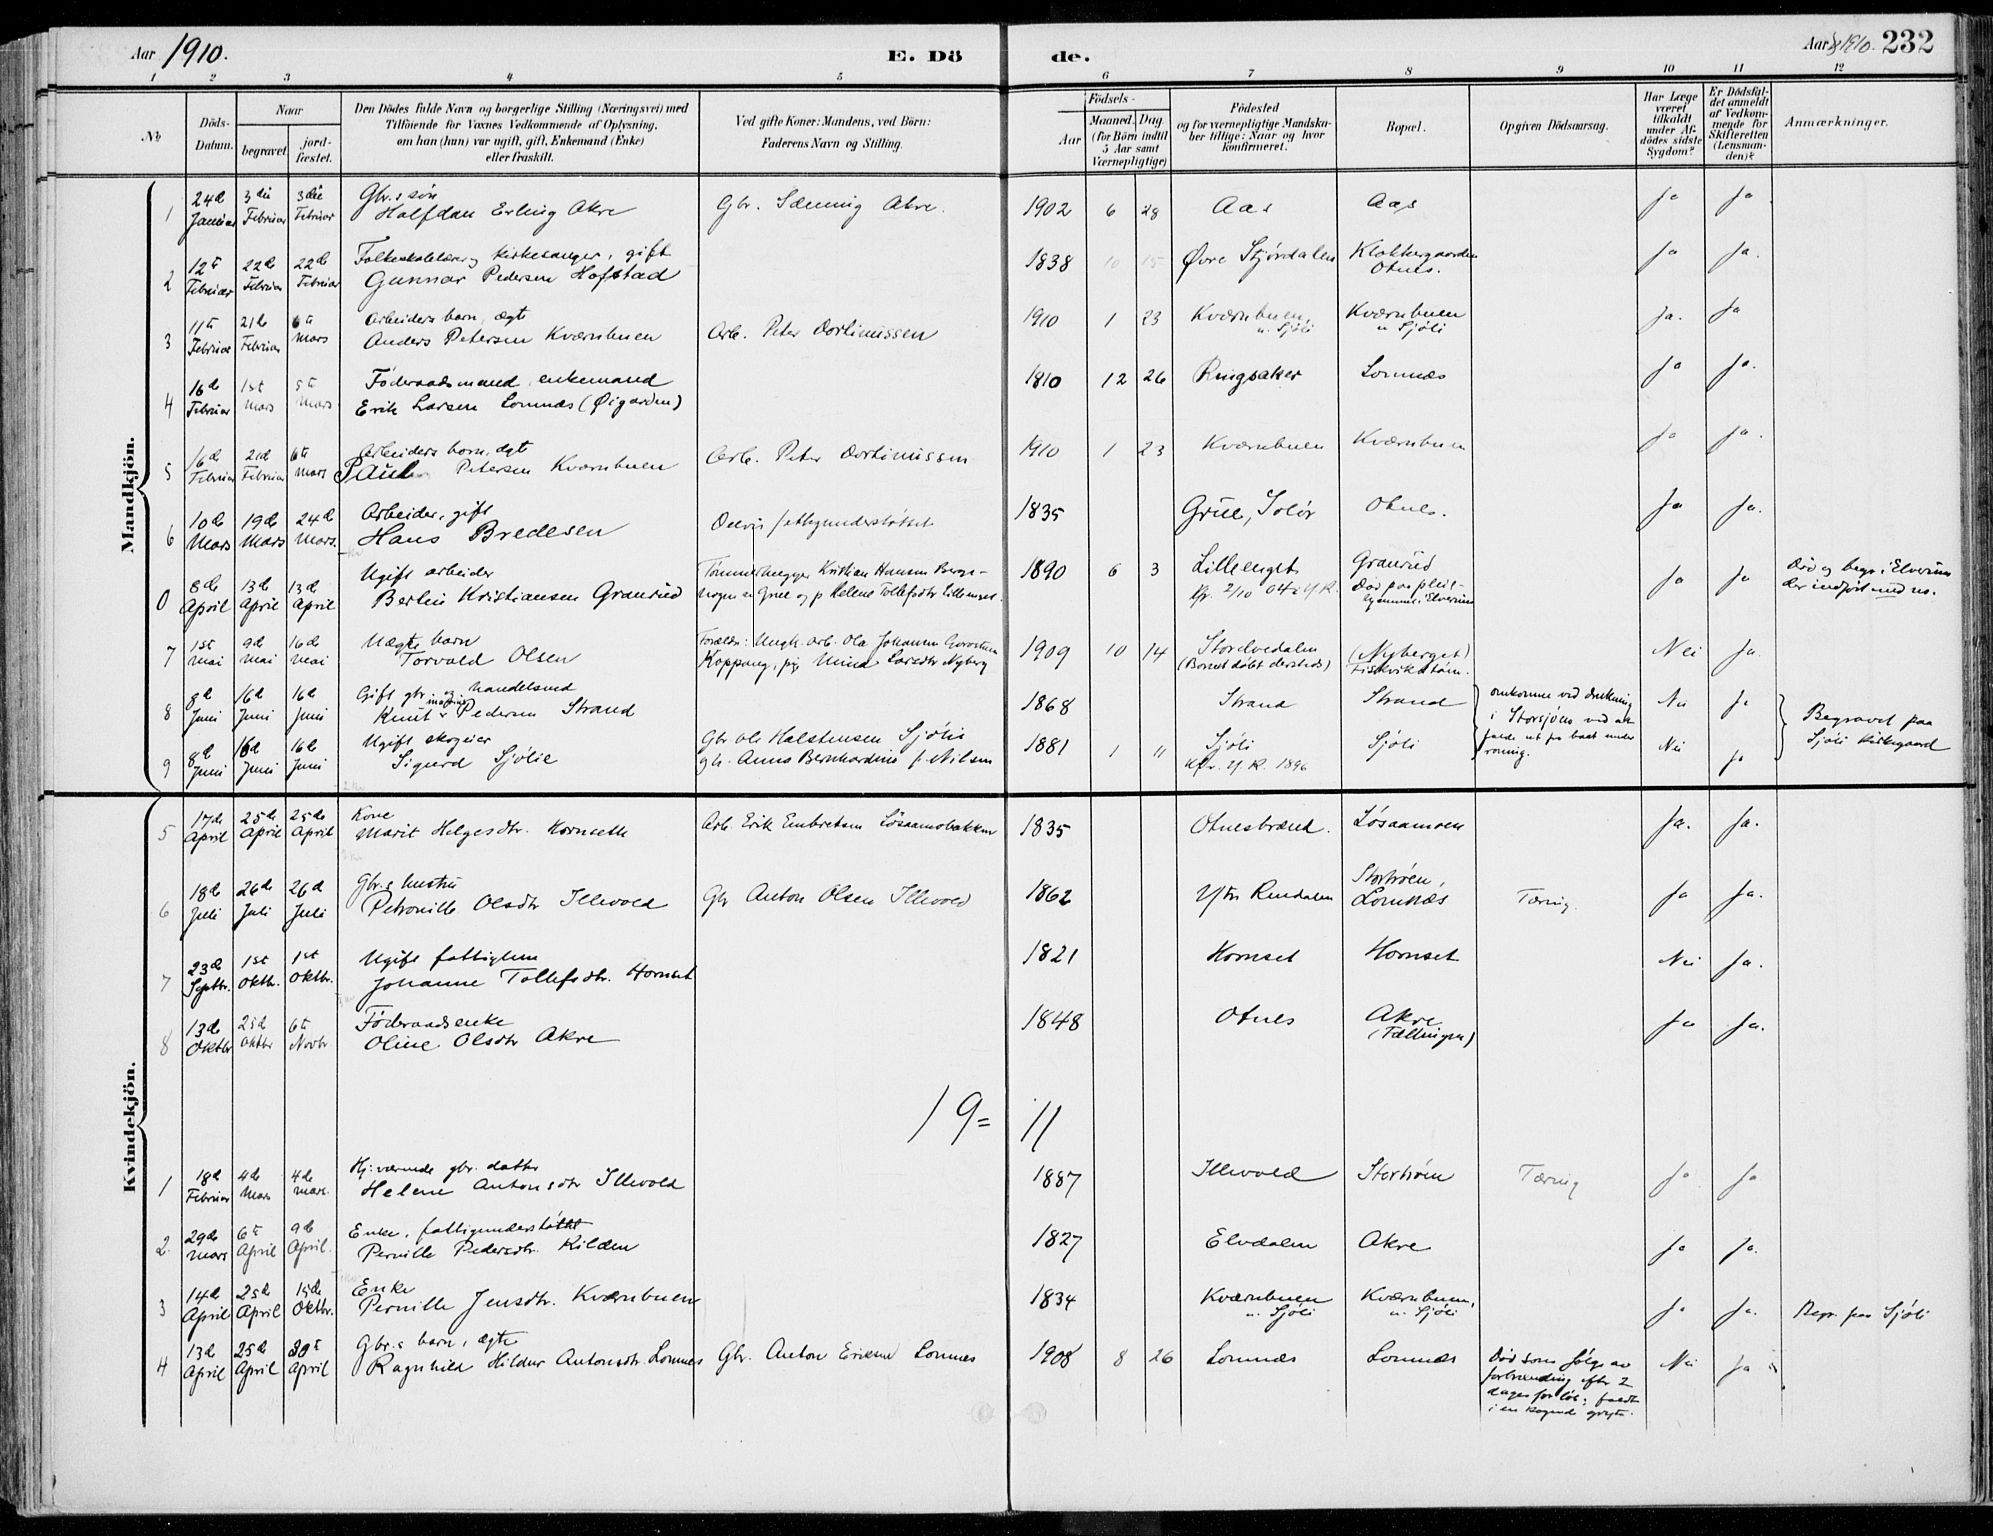 Aar 1910.
E. Dö
de.
Aar 1910. 232
1 2 3 4 5 6 7 8 9 10 11 12
No
Döds-Datum.
Naar
begravet.
jord-fæstet.
Den Dödes fulde Navn og borgerlige Stilling (Næringsvei) med
Tilföiende for Voxnes Vedkommende af Oplysning,
om han (hun) var ugift, gift, Enkemand (Enke)
eller fraskilt.
Ved gifte Koner: Mandens, ved Börn:
Faderens Navn og Stilling.
Födsels-
Aar
Maaned. Dag.
(for Börn indtil
5 Aar samt
Værnepligtige)
Födested
og for værnepligtige Mandska-
ber tillige: Naar og hvor
konfirmeret.
Bopæl.
Opgiven Dödsaarsag.
Har Læge
været
tilkaldt
under Af-
dödes sidste
Sygdom?
Er Dödsfal-
det anmeldt
af Vedkom-
mende for
Skifteretten
(Lensman-
den)?
Anmærkninger.
Mandkjön.
1 24d Januar 3die Februar 3die Februar
Gbr.s søn
Halfdan Erling Akre
Gbr. Sæming Akre. 1902 6 28 Aas Aas Ja Ja.
2 12t Februar 22d Februar 22d Februar
Folkeskolelærer og kirkesanger, gift
Gunnar Pedersen Hofstad
1838 10 15 Øvre Stjørdalen Klokkergaarden
Otnes. Ja Ja.
3 11t Februar 21d Februar 6t Mars
Arbeiders barn, ægte
Anders Petersen Kværnbuen
Arb. Peter Dortinussen 1910 1 23 Kværnbuen,
u. Sjöli
Kværnbuen
u Sjöli Ja. Ja
4 16d Februar 1st Mars 5t Mars
Föderaadsmand, enkemand
Erik Larsen Lomnæs (Øigarden)
1810 12 26 Ringsaker Lomnæs Ja Ja.
5 16d Februar 21d Februar 6t Mars
Arbeiders barn, ægt
Paul Petersen Kværnbuen
Arb. Peter Dortinussen 1910 1 23 Kværnbuen Kværnbuen Ja Ja.
6 10d Mars 19d Mars 24d Mars.
Arbeider, gift
Hans Bredesen
Delvis fattigunderstøttet 1835 Grue, Solør Otnes. Ja Ja.
0 8d April 13d April 13d April
Ugift arbeider
Berlin Kristiansen Granrud
Tømmerhugger Kristian Hansen Bergs-
hogen i Grue og p Helene Tollefsdtr Lillenget.
1890 6 3 Lillenget
Kfr. 2/10 04 i Y. R.
Granrud
Död paa pleie-
hjemmet i Elverum
Ja Ja
Död og begr. i Elverum
der indført med no.
7 1st Mai 9d Mai 16d Mai
Uægte barn
Torvald Olsen
Foræld: Ungk. arb. Ola Johansen
Koppang, pige Mina Larsdtr Nyberg
1909 10 14 Storelvedalen
(Barnet døbt dersteds)
(Nyberget)
Fiskvikstøm. Nei Ja.
8 8d Juni 16d Juni 16d Juni
Gift gbr. og handelsmd
Knut Pedersen Strand
1868 Strand Strand
omkomne ved drukning
i Storsjøen ved at
falde ut fra baat under
roning.
Nei Ja
Begravet paa
Sjöli kirkegaard
9 8d Juni 16d Juni 16d Juni
Ugift skogeier
Sigurd Sjölie
Gbr Ole Halstensen Sjölie
gh. Anna Bernhardine f. Nilsen
1881 1 " Sjöli
Kfr. Y. R. 1896
Sjöli Nei Ja
Kvindekjön.
5 17d April 25d April 25d April
Kone
Marit Helgesdtr. Hornseth
Arb. Erik Embretsen Løsaamobakken 1835 Otnesbrænd. Løsaamoen Ja. Ja.
6 18d Juli 26d Juli 26d Juli
Gbr.s hustru
Petronille Olsdtr Illevold
Gbr Anton Olsen Illevold 1862 Ytre Rendalen Stortrøen,
Lomnæs Tæring. Ja Ja.
7 23d Septbr. 1st Oktbr. 1st Oktbr.
Ugift fattiglem
Johanne Tollefsdtr. Hornset
1821 Hornset Hornset Nei Ja.
8 13d Oktbr 25d Oktbr 6t Novbr
Föderaadsenke
Oline Olsdtr Akre
1848 Otnes Akre
(Tællingen) Ja Ja.
19= 11
1 18d Februar 4d Mars 4d Mars.
Hj: værende gbr. datter
Helene Antonsdtr Illevold
1887 Illevold Stortrøen Tæring Ja Ja
2. 29d Mars 6t April 9d April.
Enke, fattigunderstøttet
Pernille Pedersdtr. Kilden
1827 Elvdalen Akre Ja Ja.
3 14d April 25d April 15d Oktbr.
Enke
Pernille Jensdtr. Kværnbuen
1834 Kværnbuen
u. Sjöli
Kværnbuen,
u. Sjöli Ja Ja. Begr. paa Sjöli
4 13d April 25d April 30t April
Gbr.s barn, ægte
Ragnhild Hildur Antonsdtr. Lomnes
Gbr. Anton Eriksen Lomnes 1908 8 26 Lomnæs Lomnæs
Död som følge av
forbrænding efter 2
dages forløb; faldt
i en kogende gryte.
Nei Ja